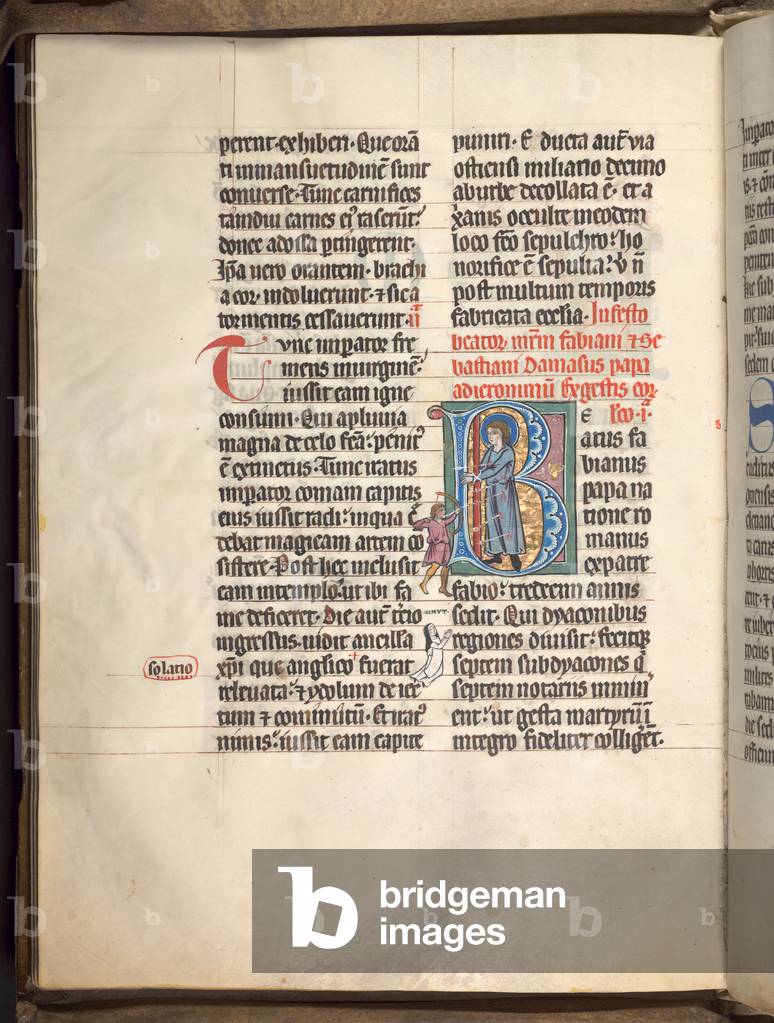 perent exhiberi. Que orā
ti in mansuetudinē sunt
conuerse. Tunc carnifices
tamdiu carnes ei raserūt.
donec ad ossa ꝑtingerent.
Ip̄a uero orantem. brachi
a eor. indoluerunt. ⁊ sic a
tormentis cessauerunt. ii
Tvnc imꝑator fre
mens in uirginē.
iussit eam igne
consumi. Qui a pluuia
magna de celo fc̄a. penit
ē extinctus. Tunc iratus
imꝑator comam capitis
eius iussit radi. in qua c̄
debat magicam artem co
sistere. Post hec inclusit
eam in templo. ut ibi fa
me deficeret. Die aut̄ t̄cio
ingressus. uidit ancilla
xp̄i que anglico fuerat
solatio
releuata. ⁊ ydolum deiec
tum ⁊ cominutū. Et irat
nimis. iussit eam capite
puniri. E ducta aut̄ uia
ostiensi miliario decimo
ab urbe decollata ē. et a
xanis occulte in eodem
loco fc̄o sepulchro. ho
norifice ē sepulta. v n̄
post multum temporis
fabricata ecclesia. In festo
beator. mr̄m fabiani ⁊ Se
bastiani Damasus papa
ad ieronimū Ex gestis eor
B E lc̄o. i.
atus fa
bianus
papa na
tione ro
manus
ex patre
fabio. tredecim annis
sedit. Qui dyaconibus
regiones diuisit. fecitqꝫ
septem subdyacones q̄
septem notariis immin
ent. ut gesta martyrū ī
integro fideliter colliger̄t.
bridgeman
images